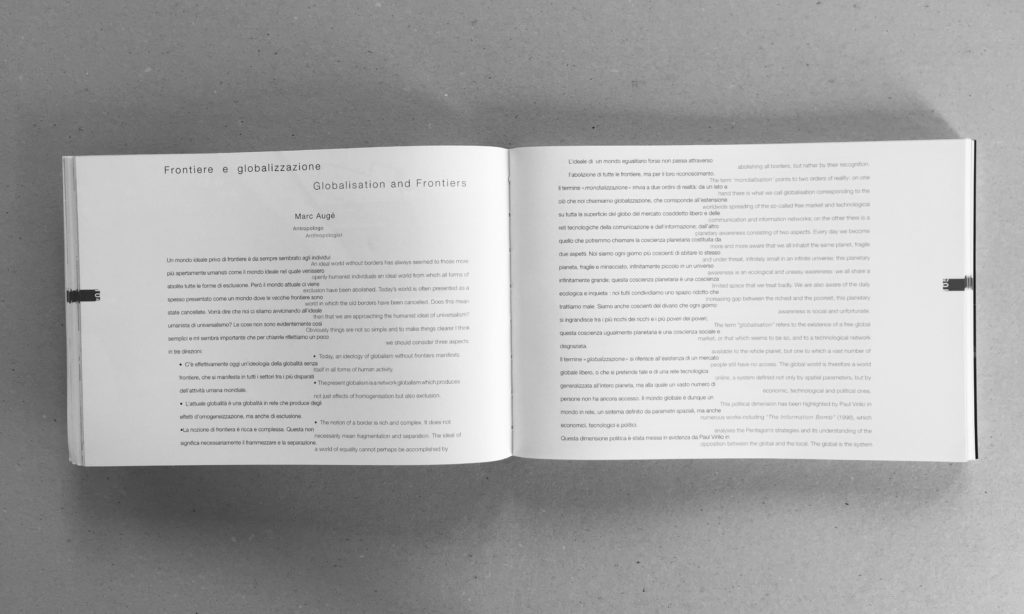 Frontiere e globalizzazione
Globalisation and Frontiers
Marc Augè
Antropologo
Anthropologist
Un mondo ideale privo di frontiere è da sempre sembrato agli individui
più apertamente umanisti come il mondo ideale nel quale venissero
abolite tutte le forme di esclusione. Però il mondo attuale ci viene
spesso presentato come un mondo dove le vecchie frontiere sono
state cancellate. Vorrà dire che noi ci stiamo avvicinando all'ideale
umanista di universalismo? Le cose non sono evidentemente così
semplici e mi sembra importante che per chiarirle riflettiamo un poco
in tre direzioni:
• C'è effettivamente oggi un'ideologia della globalità senza
frontiere, che si manifesta in tutti i settori fra i più disparati
dell'attività umana mondiale.
• L'attuale globalità è una globalità in rete che produce degli
effetti d'omogeneizzazione, ma anche di esclusione.
•La nozione di frontiera è ricca e complessa. Questa non
significa necessariamente il frammezzare e la separazione.
An ideal world without borders has always seemed to those more
openly humanist individuals an ideal world from which all forms of
exclusion have been abolished. Today's world is often presented as a
world in which the old borders have been cancelled. Does this mean
then that we are approaching the humanist ideal of universalism?
Obviously things are not so simple and to make things clearer I think
we should consider three aspects.
• Today, an ideology of globalism without frontiers manifests
itself in all forms of human activity.
• The present globalism is a network globalism which produces
not just effects of homogenisation but also exclusion.
• The notion of a border is rich and complex. It does not
necessarily mean fragmentation and separation. The ideal of
a world of equality cannot perhaps be accomplished by
L'ideale di un mondo egualitario forse non passa attraverso
l'abolizione di tutte le frontiere, ma per il loro riconoscimento.
Il termine «mondializzazione» rinvia a due ordini di realtà: da un lato e
ciò che noi chiamiamo globalizzazione, che corrisponde all'estensione
su tutta la superficie del globo del mercato cosiddetto libero e delle
reti tecnologiche della comunicazione e dell'informazione; dall'altro
quello che potremmo chiamare la coscienza planetaria costituita da
due aspetti. Noi siamo ogni giorno più coscienti di abitare lo stesso
pianeta, fragile e minacciato, infinitamente piccolo in un universo
infinitamente grande; questa coscienza planetaria è una coscienza
ecologica e inquieta : noi tutti condividiamo uno spazio ridotto che
trattiamo male. Siamo anche coscienti del divario che ogni giorno
si ingrandisce fra i più ricchi dei ricchi e i più poveri dei poveri,
questa coscienza ugualmente planetaria è una coscienza sociale e
disgraziata.
Il termine «globalizzazione» si riferisce all'esistenza di un mercato
globale libero, o che si pretende tale e di una rete tecnologica
generalizzata all'intero pianeta, ma alla quale un vasto numero di
persone non ha ancora accesso. Il mondo globale è dunque un
mondo in rete, un sistema definito da parametri spaziali, ma anche
economici, tecnologici e politici.
Questa dimensione politica è stata messa in evidenza da Paul Virilio in
abolishing all borders, but rather by their recognition.
The term "mondialisation" points to two orders of reality: on one
hand there is what we call globalisation corresponding to the
worldwide spreading of the so-called free market and technological
communication and information networks; on the other there is a
planetary awareness consisting of two aspects. Every day we become
more and more aware that we all inhabit the same planet, fragile
and under threat, infinitely small in an infinite universe; this planetary
awareness is an ecological and uneasy awareness: we all share a
limited space that we treat badly. We are also aware of the daily
increasing gap between the richest and the poorest; this planetary
awareness is social and unfortunate.
The term "globalisation" refers to the existence of a free global
market, or that which seems to be so, and to a technological network
available to the whole planet, but one to which a vast number of
people still have no access. The global world is therefore a world
online, a system defined not only by spatial parameters, but by
economic, technological and political ones.
This political dimension has been highlighted by Paul Virilio in
numerous works including "The Information Bomb" (1998), which
analyses the Pentagon's strategies and its understanding of the
opposition between the global and the local. The global is the system